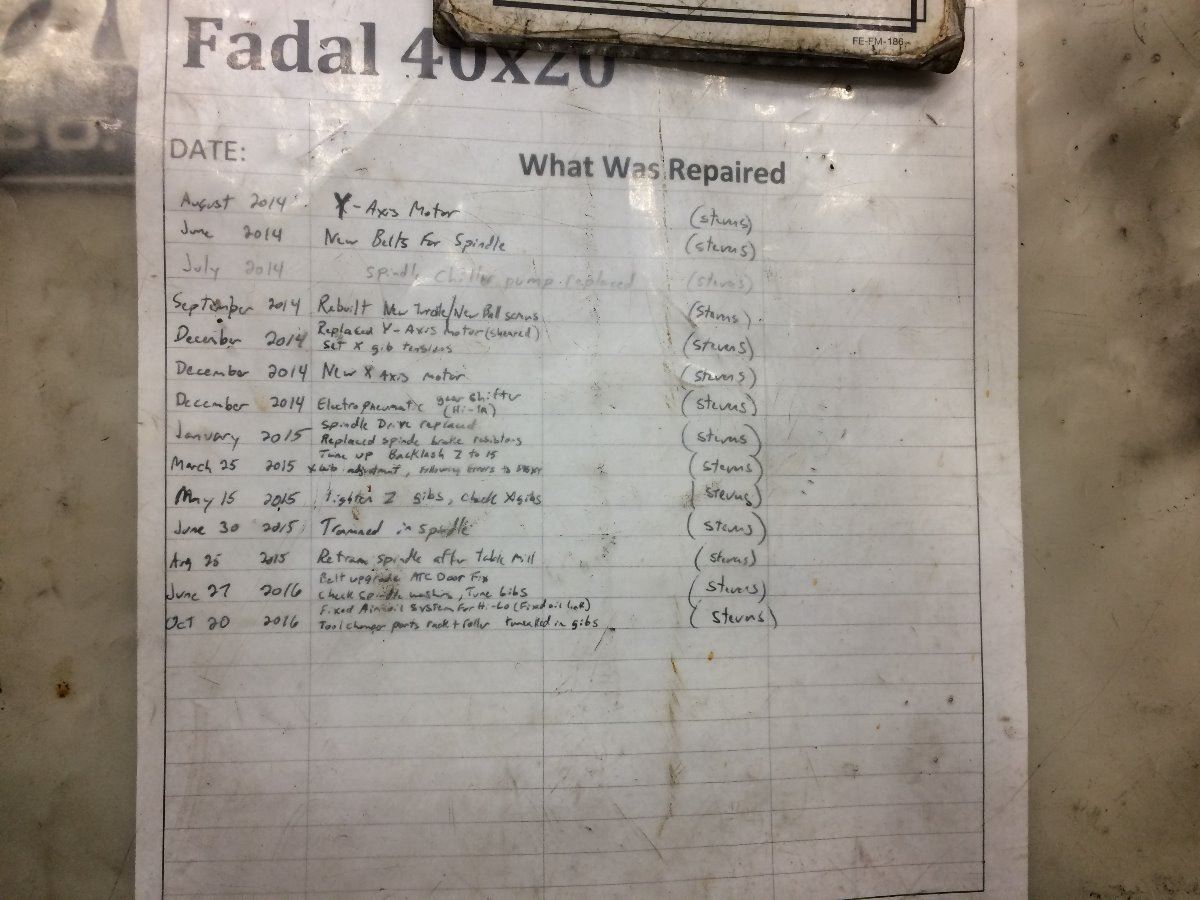 FE-FM-186
Fadal 40x20
DATE: What Was Repaired
August 2014 Y-Axis Motor (stevens)
June 2014 New Belts For Spindle (stevens)
July 2014 spindle chiller pump replaced (stevens)
September 2014 Rebuilt New Turdle/New Ball screws (Stevens)
December 2014 Replaced Y-Axis Motor (sheared)
Set X gib tensions (stevens)
December 2014 New X Axis motor (stevens)
December 2014 Electropneumatic gear shifter
(Hi-) (stevens)
January 2015 Spindle Drive replaced
Replaced spindle brake resistors (stevens)
March 25 2015 Tune up Backlash Z to 15
adjustment, Following Errors to (stevens)
May 15 2015 Tighten Z gibs, check X gibs (stevens)
June 30 2015 Trammed in spindle (stevens)
Aug 25 2015 Retram spindle after Table Mill (stevens)
June 27 2016 Belt upgrade ATC Door Fix
Check spindle washers, Tune Gibs (stevens)
Oct 20 2016 Fixed Air/oil System For Hi-Lo (Fixed oil leak)
Tool changer parts rack + roller in gibs (stevens)